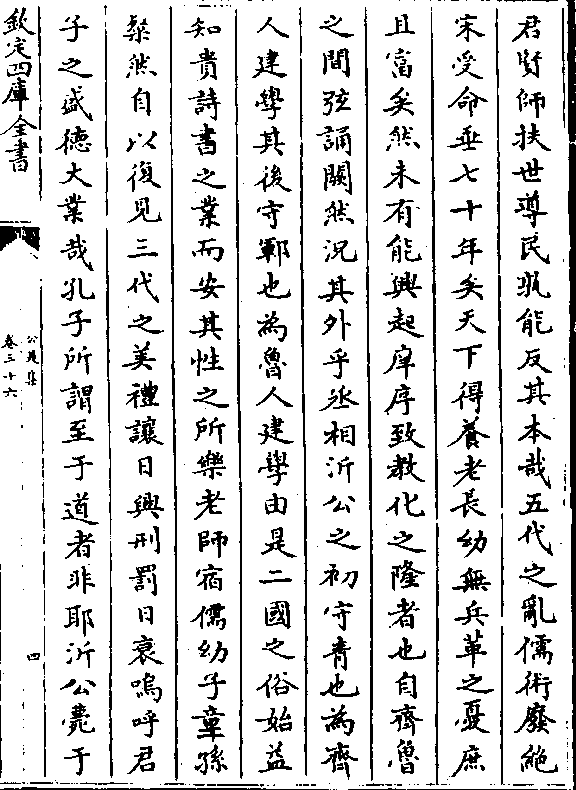 君賢師扶世導民孰能反其本哉五代之亂儒術廢絶
宋受命垂七十年矣天下得養老長幼無兵革之憂庶
且富矣然未有能興起庠序致教化之隆者也自齊魯
之間弦誦闕然況其外乎丞相沂公之初守青也為齊
人建學其後守鄆也為魯人建學由是二國之俗始益
知貴詩書之業而安其性之所樂老師宿儒幼子童孫
粲然自以復見三代之美禮讓日興刑罰日衰嗚呼君
子之盛德大業哉孔子所謂至于道者非耶沂公薨于
欽定四庫全書
公是集
卷三十六
四